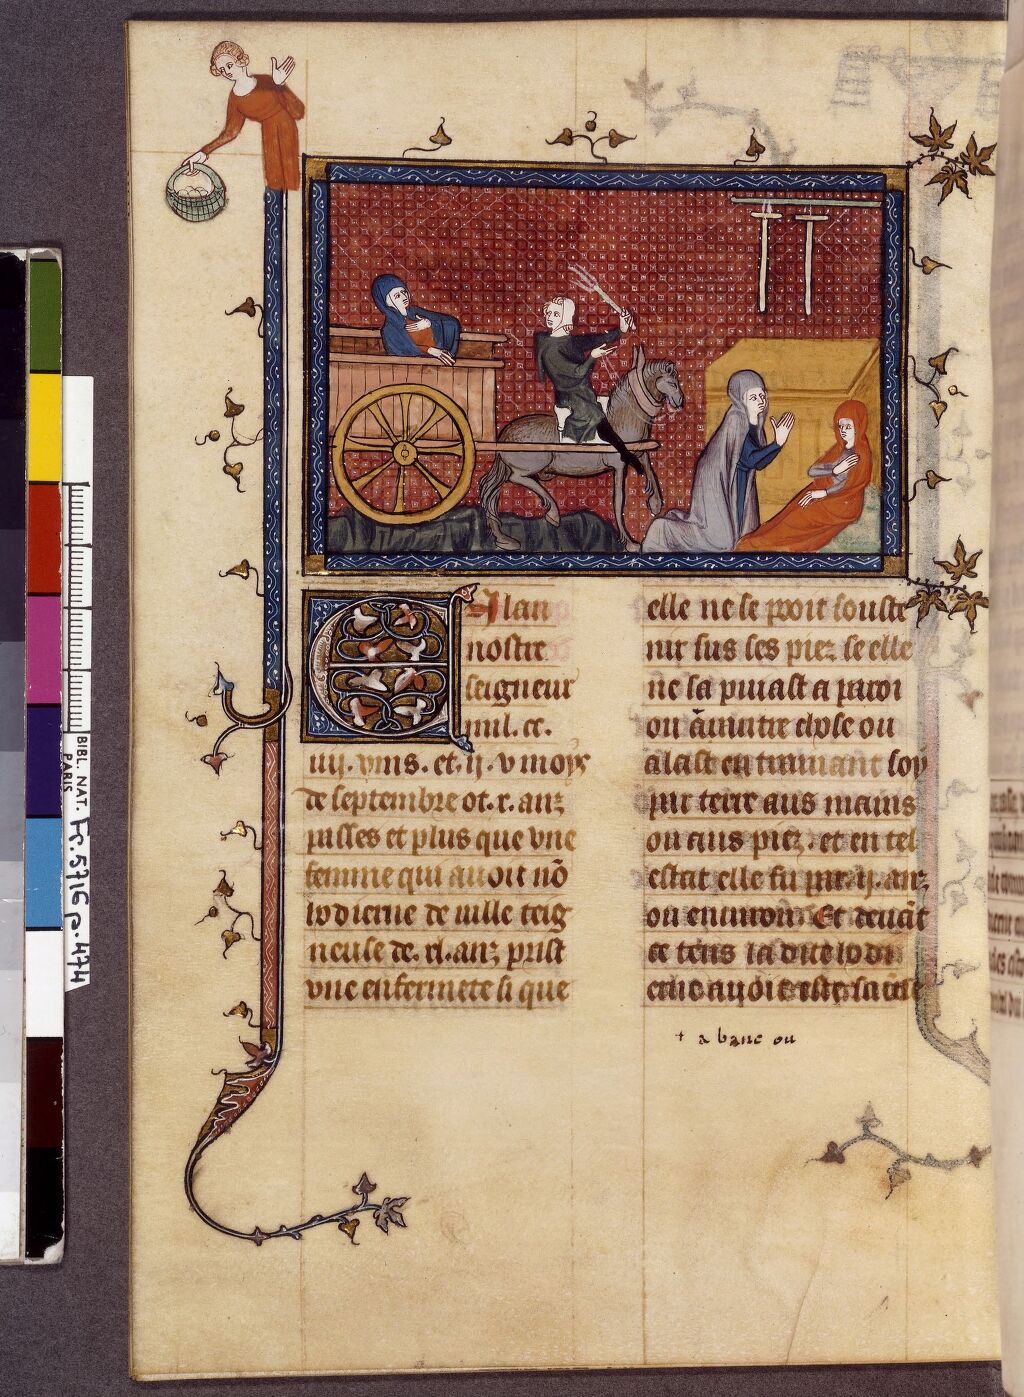 El an
nostre
seigneur
mil. cc.
iiij. vins. et. ij. v moys
de septembre ot. x. anz
passes et plus que vne
femme qui auoit nō
lodierne de uille teig
neuse de. xl. anz prist
vne enfermete si que
elle ne se pooit souste
nir sus ses piez se elle
ne sa puiast a paroi
ou a mitre chose ou
alast en trainant soy
par terre aus mains
ou aus piez. et en tel
estat elle fu par. ij. anz
ou enuiron. Et deuāt
ce tēns la dite lodi
erne auoit este
+ a banc ou
BIBL. NAT.
PARIS
Fr. 5716 p. 474